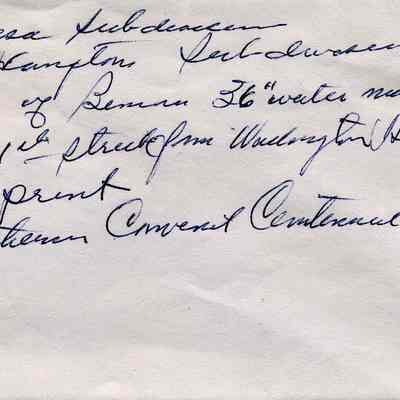 Subdivision
Hampton Subdivision
of Benicia 36" water ma
1st street from Washington H
print
theran Convent Centennial